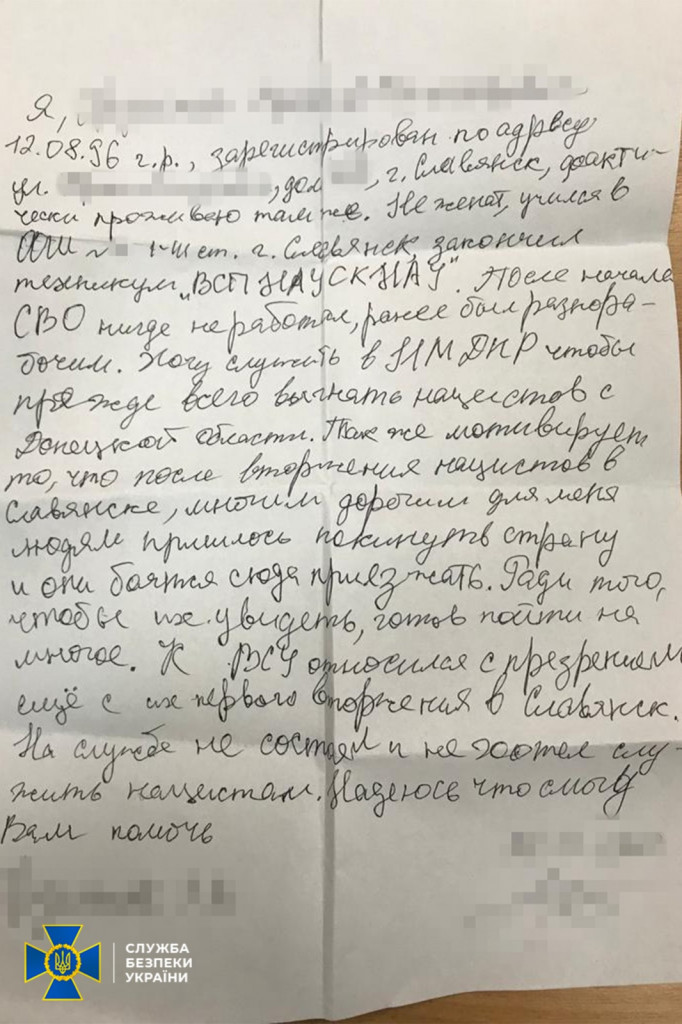 Я,
12.08.96 г.р., зарегистрирован по адресу
ул. , дом , г. Славянск, факти-
чески проживаю там же. Не женат, учился в
ОШ № I-III ст. г. Славянск, закончил
техникум „ВСП НАУСКНАУ". После начала
СВО нигде не работал, ранее был разнора-
бочим. Хочу служить в НМ ДНР чтобы
прежде всего выгнать нацистов с
Донецкой области. Так же мотивирует
то, что после вторжения нацистов в
Славянске, многим дорогим для меня
людям пришлось покинуть страну
и они боятся сюда приезжать. Ради того,
чтобы их увидеть, готов пойти на
многое. К ВСУ относился с презрением
ещё с их первого вторжения в Славянск.
На службе не состоял и не хотел слу-
жить нацистам. Надеюсь что смогу
Вам помочь
СЛУЖБА
БЕЗПЕКИ
УКРАЇНИ